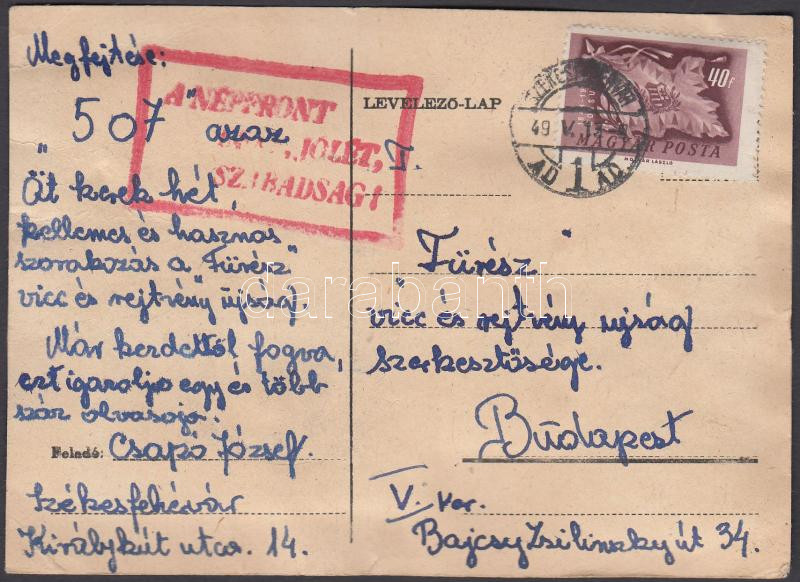 Megfejtése:
507 azaz
"Öt kerek hét,
kellemes és hasznos
szorakozás a "Fürész"
vicc és rejtvény ujság.
Már kezdettől fogva,
ezt igazolja egy és több
száz olvasoja.
Feladó: Csapó József.
Székesfehérvár
Királykút utca. 14.
A NÉPFRONT
JÓLÉT,
SZABADSÁG!
LEVELEZŐ-LAP
49 V.
AD 1 AD
40f
MAGYAR POSTA
"Fürész"
vicc és rejtvény ujság
szerkesztösége.
Budapest
V. ker.
Bajcsy Zsilinszky út 34.
darabanth